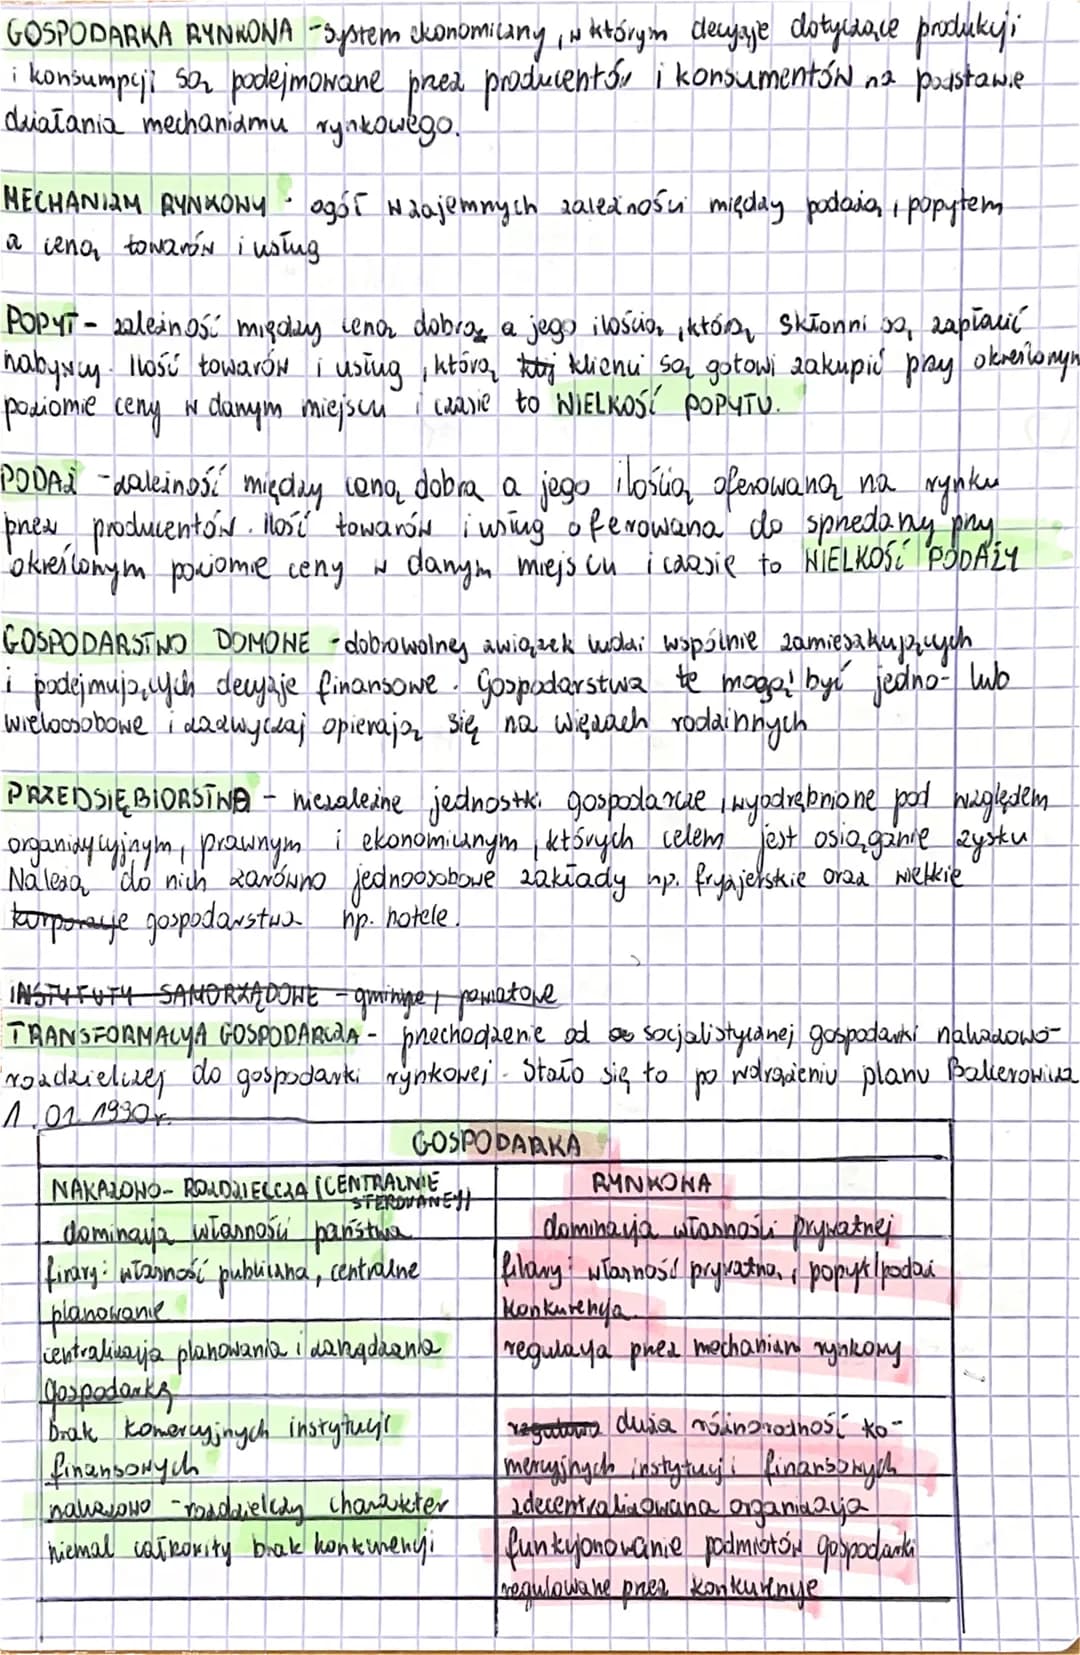 GOSPODARKA RYNKOWA - system ekonomiczny, w którym decyzje dotyczące produkcji
i konsumpcji są podejmowane przez producentów i konsumentów na podstawie
działania mechanizmu rynkowego.
MECHANIZM RYNKOWY - ogół wzajemnych zależności między podażą, popytem
a ceną towarów i usług
POPYT - zależność między ceną dobra a jego ilością, którą skłonni są zapłacić
nabywcy. Ilość towarów i usług, którą klienci są gotowi zakupić przy określonym
poziomie ceny w danym miejscu i czasie to WIELKOŚĆ POPYTU.
PODAŻ - zależność między ceną dobra a jego ilością oferowaną na rynku
przez producentów. Ilość towarów i usług oferowana do sprzedaży przy
określonym poziomie ceny w danym miejscu i czasie to WIELKOŚĆ PODAŻY
GOSPODARSTWO DOMOWE - dobrowolny związek ludzi wspólnie zamieszkujących
i podejmujących decyzje finansowe. Gospodarstwa te mogą być jedno- lub
wieloosobowe i zazwyczaj opierają się na więzach rodzinnych
PRZEDSIĘBIORSTWA - niezależne jednostki gospodarcze, wyodrębnione pod względem
organizycyjnym, prawnym i ekonomicznym, których celem jest osiąganie zysku
Należą do nich zarówno jednoosobowe zakłady np. fryzjerskie oraz wielkie
korporacje gospodarstwa np. hotele.
INSTYTUTY SAMORZĄDOWE - gminne, powiatowe
TRANSFORMACJA GOSPODARCZA - przechodzenie od socjalistycznej gospodarki nakazowo-
rozdzielczej do gospodarki rynkowej. Stało się to po wdrążeniu planu Balcerowicza
1.01.1990r.
GOSPODARKA
NAKAZOWO-ROZDZIELCZA (CENTRALNIE STEROWANEJ)
RYNKOWA
dominacja własności państwa
dominacja własności prywatnej
firary: własność publiczna, centralne
planowanie
filary: własność prywatna, popyt/podaż
konkurencja.
centralizacja planowania i zarządzania
gospodarką
regulacja przez mechanizm rynkowy
brak komercyjnych instytucji
finansowych
duża różnorodność ko-
mercyjnych instytucji finansowych
nakazowo-rozdzielczy charakter
zdecentralizowana organizacja
niemal całkowity brak konkurencji
funkcjonowanie podmiotów gospodarki
regulowane przez konkurencję